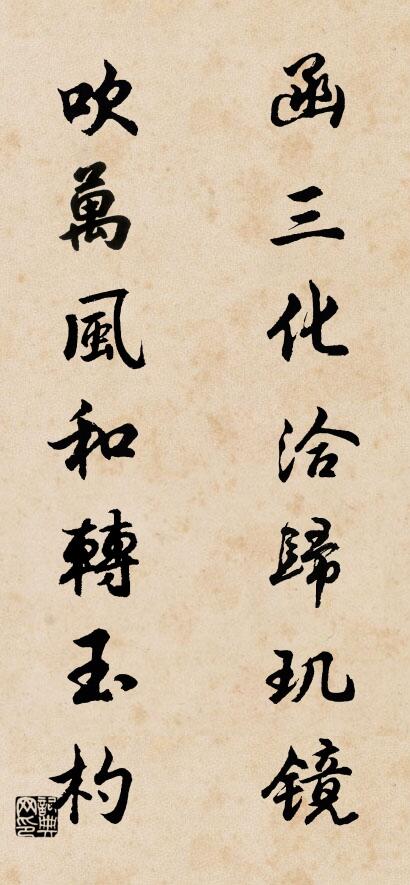 函三化洽歸玑镜
吹萬風和轉玉杓